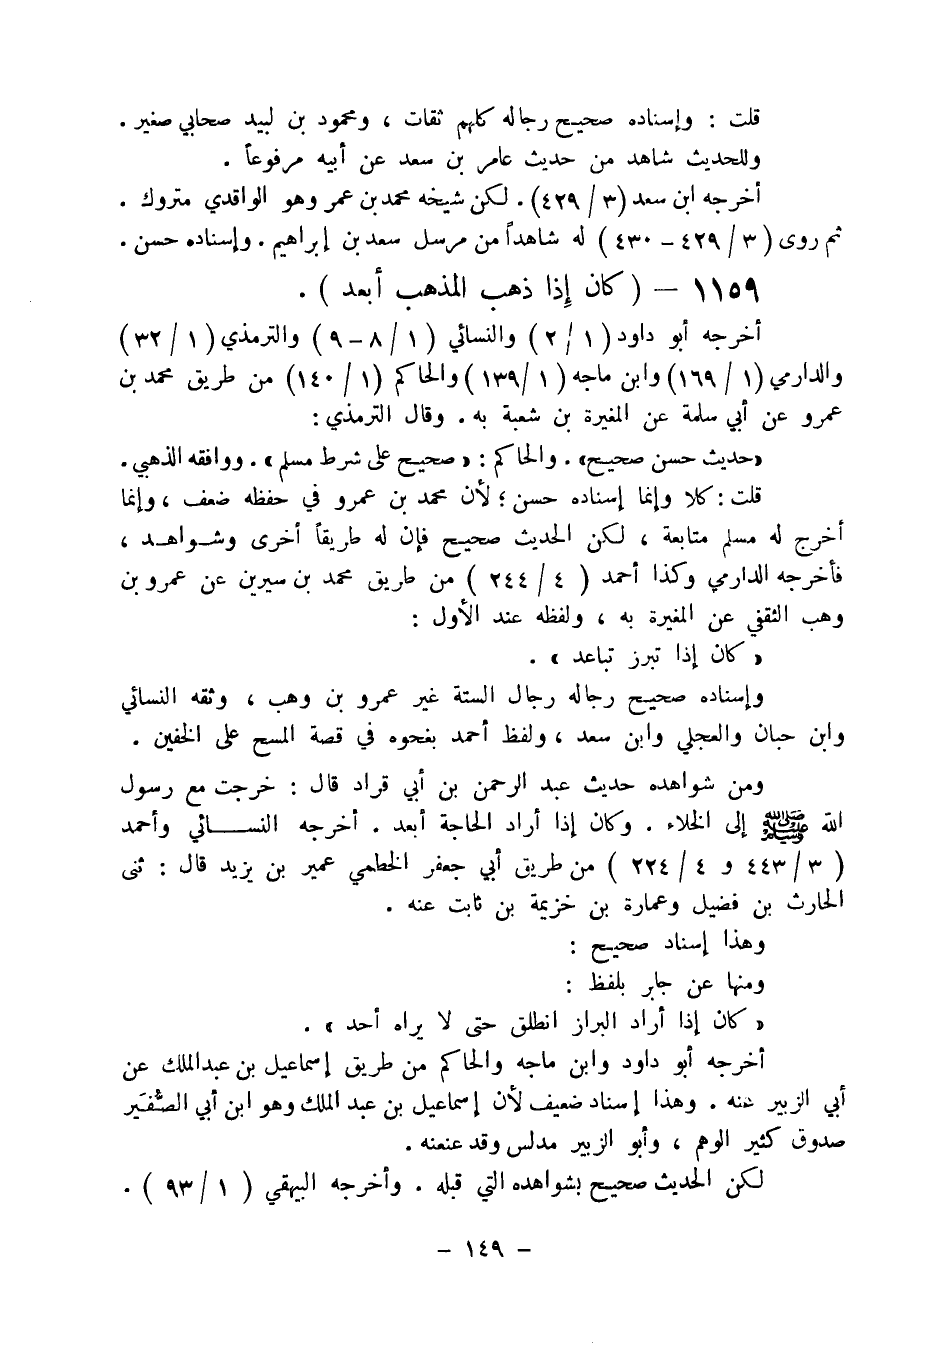 قلت : وإسناده صحيح رجاله كلهم ثقات ، ومحمود بن لبيد صحابي صغير .
وللحديث شاهد من حديث عامر بن سعد عن أبيه مرفوعاً .
أخرجه ابن سعد (٣ / ٤٢٩) . لكن شيخه محمد بن عمر وهو الواقدي متروك .
ثم روى ( ٣ / ٤٢٩ - ٤٣٠ ) له شاهداً من مرسل سعد بن إبراهيم . وإسناده حسن .
١١٥٩ - ( كان إذا ذهب المذهب أبعد ) .
أخرجه أبو داود ( ١ / ٢ ) والنسائي ( ١ / ٨ - ٩ ) والترمذي ( ١ / ٣٢ )
والدارمي ( ١ / ١٦٩ ) وابن ماجه ( ١ / ١٣٩ ) والحاكم ( ١ / ١٤٠ ) من طريق محمد بن
عمرو عن أبي سلمة عن المغيرة بن شعبة به . وقال الترمذي :
« حديث حسن صحيح » . والحاكم : « صحيح على شرط مسلم » . ووافقه الذهبي .
قلت : كلا وإنما إسناده حسن ؛ لأن محمد بن عمرو في حفظه ضعف ، وإنما
أخرج له مسلم متابعة ، لكن الحديث صحيح فإن له طريقاً أخرى وشواهد ،
فأخرجه الدارمي وكذا أحمد ( ٤ / ٢٤٤ ) من طريق محمد بن سيرين عن عمرو بن
وهب الثقفي عن المغيرة به ، ولفظه عند الأول :
« كان إذا تبرز تباعد » .
وإسناده صحيح رجاله رجال الستة غير عمرو بن وهب ، وثقه النسائي
وابن حبان والعجلي وابن سعد ، ولفظ أحمد بنحوه في قصة المسح على الخفين .
ومن شواهده حديث عبد الرحمن بن أبي قراد قال : خرجت مع رسول
الله ﷺ إلى الخلاء . وكان إذا أراد الحاجة أبعد . أخرجه النسائي وأحمد
( ٣ / ٤٤٣ و ٤ / ٢٢٤ ) من طريق أبي جعفر الخطمي عمير بن يزيد قال : ثنى
الحارث بن فضيل وعمارة بن خزيمة بن ثابت عنه .
وهذا إسناد صحيح :
ومنها عن جابر بلفظ :
« كان إذا أراد البراز انطلق حتى لا يراه أحد » .
أخرجه أبو داود وابن ماجه والحاكم من طريق إسماعيل بن عبدالملك عن
أبي الزبير عنه . وهذا إسناد ضعيف لأن إسماعيل بن عبد الملك وهو ابن أبي الصُّفَير
صدوق كثير الوهم ، وأبو الزبير مدلس وقد عنعنه .
لكن الحديث صحيح بشواهده التي قبله . وأخرجه البيهقي ( ١ / ٩٣ ) .
- ١٤٩ -